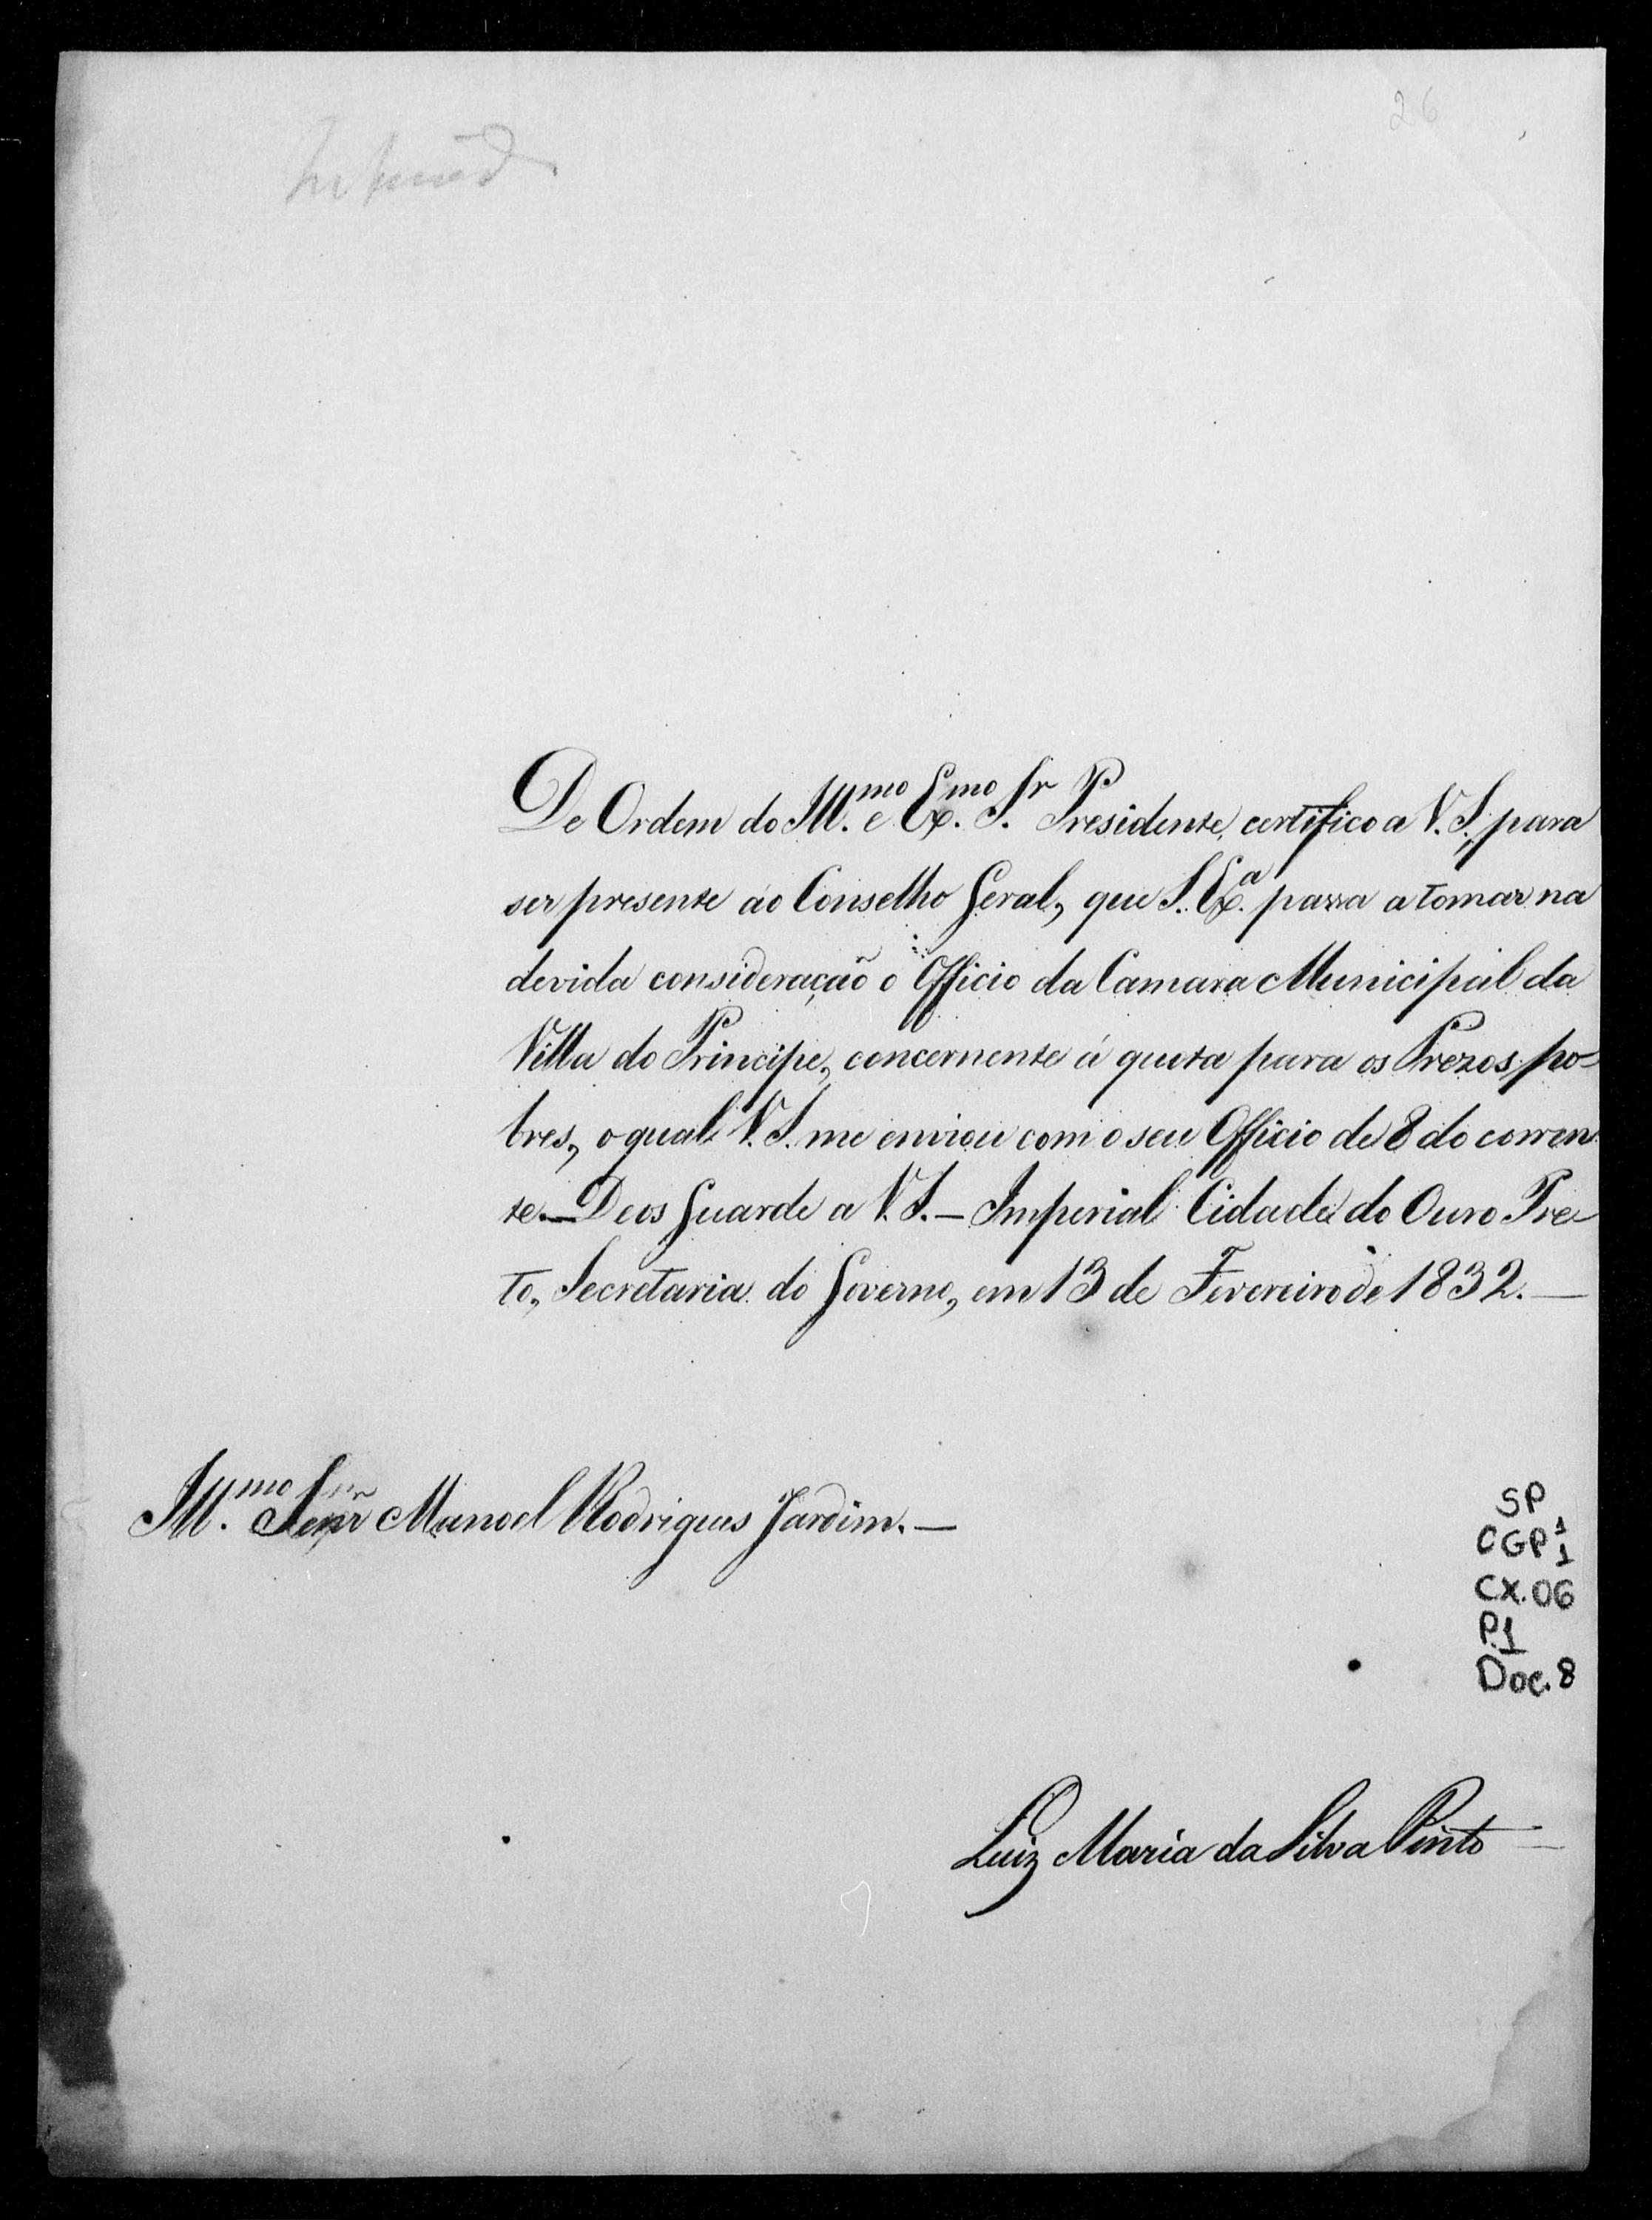 26
De Ordem do Ill.mo e Ex.mo Sr. Presidente, certifico a V. S., para
ser presente ao Conselho Geral, que S. Ex.a passa a tomar na
devida consideração o Officio da Camara Municipal da
Villa do Principe, concernente á quota para os Prezos po-
bres, o qual V. S. me enviou com o seu Officio de 8 do corren
te.—Deos Guarde a V. S.—Imperial Cidade do Ouro Pre
to, Secretaria do Governo, em 13 de Fevereiro de 1832.—
Ill.mo Senr Manoel Rodrigues Jardim.—
SP
CGP 1
1
CX.06
P.1
Doc.8
Luiz Maria da Silva Pinto